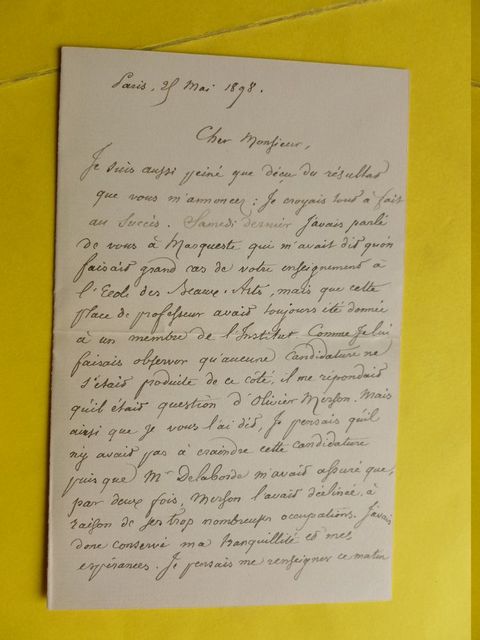 Paris, 25 Mai 1898.
Cher Monsieur,
Je suis aussi peiné que déçu du résultat
que vous m'annoncez : Je croyais tout à fait
au succès. Samedi dernier j'avais parlé
de vous à Marqueste qui m'avait dit qu'on
faisait grand cas de votre enseignement à
l'Ecole des Beaux-Arts, mais que cette
place de professeur avait toujours été donnée
à un membre de l'Institut. Comme je lui
faisais observer qu'aucune candidature ne
s'était produite de ce côté, il me répondait
qu'il était question d'Olivier Merson. Mais
ainsi que je vous l'ai dit, je pensais qu'il
n'y avait pas à craindre cette candidature
puis que Mr Delaborde m'avait assuré que,
par deux fois, Merson l'avait déclinée, à
raison de ses trop nombreuses occupations. J'avais
donc conservé ma tranquillité et mes
espérances. Je pensais me renseigner ce matin